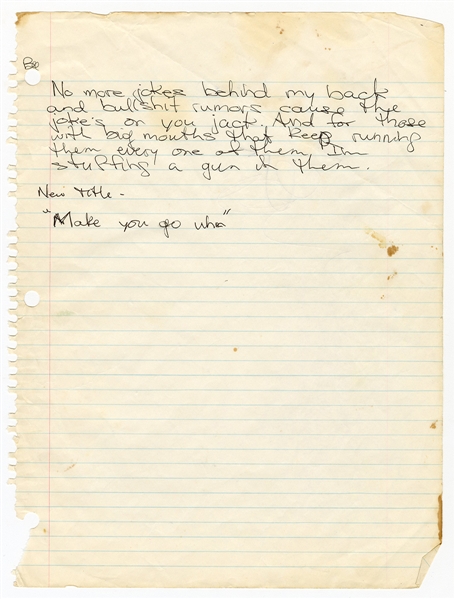 Be
No more jokes behind my back
and bullshit rumors cause the
joke's on you jack. And for those
with big mouths that keep running
them every one of them I'm
stuffing a gun in them.
New title -
"Make you go who"